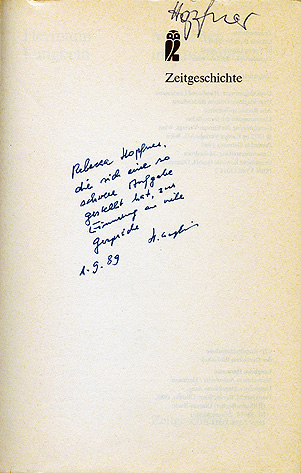 Hopfner
Zeitgeschichte
Rebecca Hopfner,
die sich eine so
schwere Aufgabe
gestellt hat, zur
Erinnerung an viele
Gespräche
1.9.89